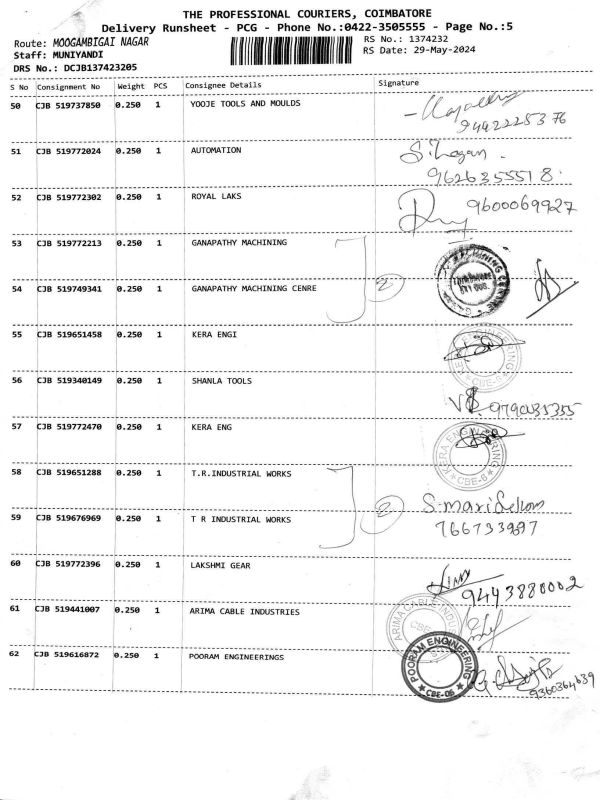 THE PROFESSIONAL COURIERS, COIMBATORE
Delivery Runsheet - PCG - Phone No.:0422-3505555 - Page No.:5
Route: MOOGAMBIGAI NAGAR
RS No.: 1374232
Staff: MUNIYANDI
RS Date: 29-May-2024
DRS No.: DCJB137423205
S No Consignment No Weight PCS Consignee Details Signature
50 CJB 519737850 0.250 1 YOOJE TOOLS AND MOULDS
9442225376
51 CJB 519772024 0.250 1 AUTOMATION
9626355518
52 CJB 519772302 0.250 1 ROYAL LAKS
9600069927
53 CJB 519772213 0.250 1 GANAPATHY MACHINING
54 CJB 519749341 0.250 1 GANAPATHY MACHINING CENRE
2
55 CJB 519651458 0.250 1 KERA ENGI
56 CJB 519340149 0.250 1 SHANLA TOOLS
9790035355
57 CJB 519772470 0.250 1 KERA ENG
KERA ENGINEERING
CBE-6
58 CJB 519651288 0.250 1 T.R.INDUSTRIAL WORKS
2
59 CJB 519676969 0.250 1 T R INDUSTRIAL WORKS
60 CJB 519772396 0.250 1 LAKSHMI GEAR
9443880002
61 CJB 519441007 0.250 1 ARIMA CABLE INDUSTRIES
ARIMA CABLE
CBE
62 CJB 519616872 0.250 1 POORAM ENGINEERINGS
POORAM ENGINEERING
CBE-06
9360364639